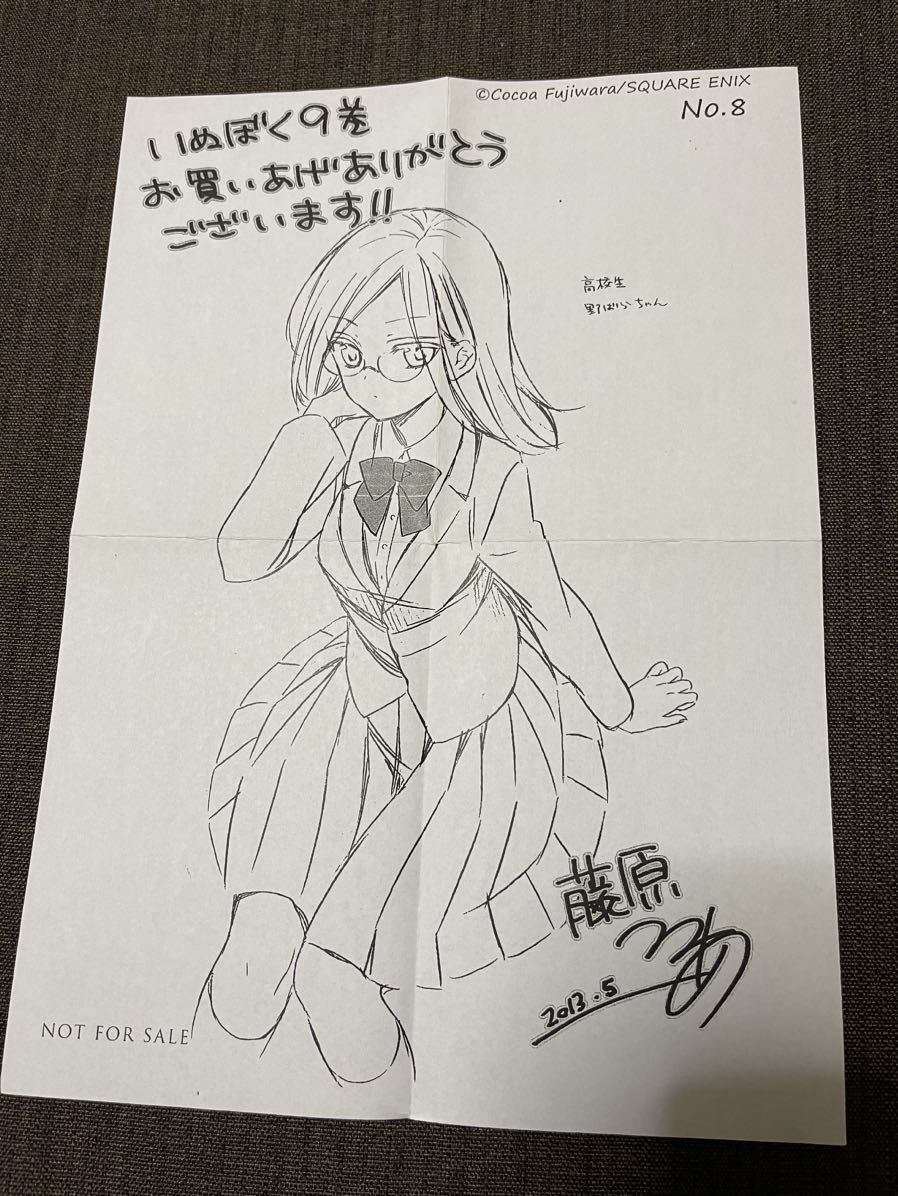 ©Cocoa Fujiwara/SQUARE ENIX
No.8
いぬぼく9巻
お買いあげありがとう
ございます!!
高校生
野ばらちゃん
藤原
ここあ
2013.5
NOT FOR SALE